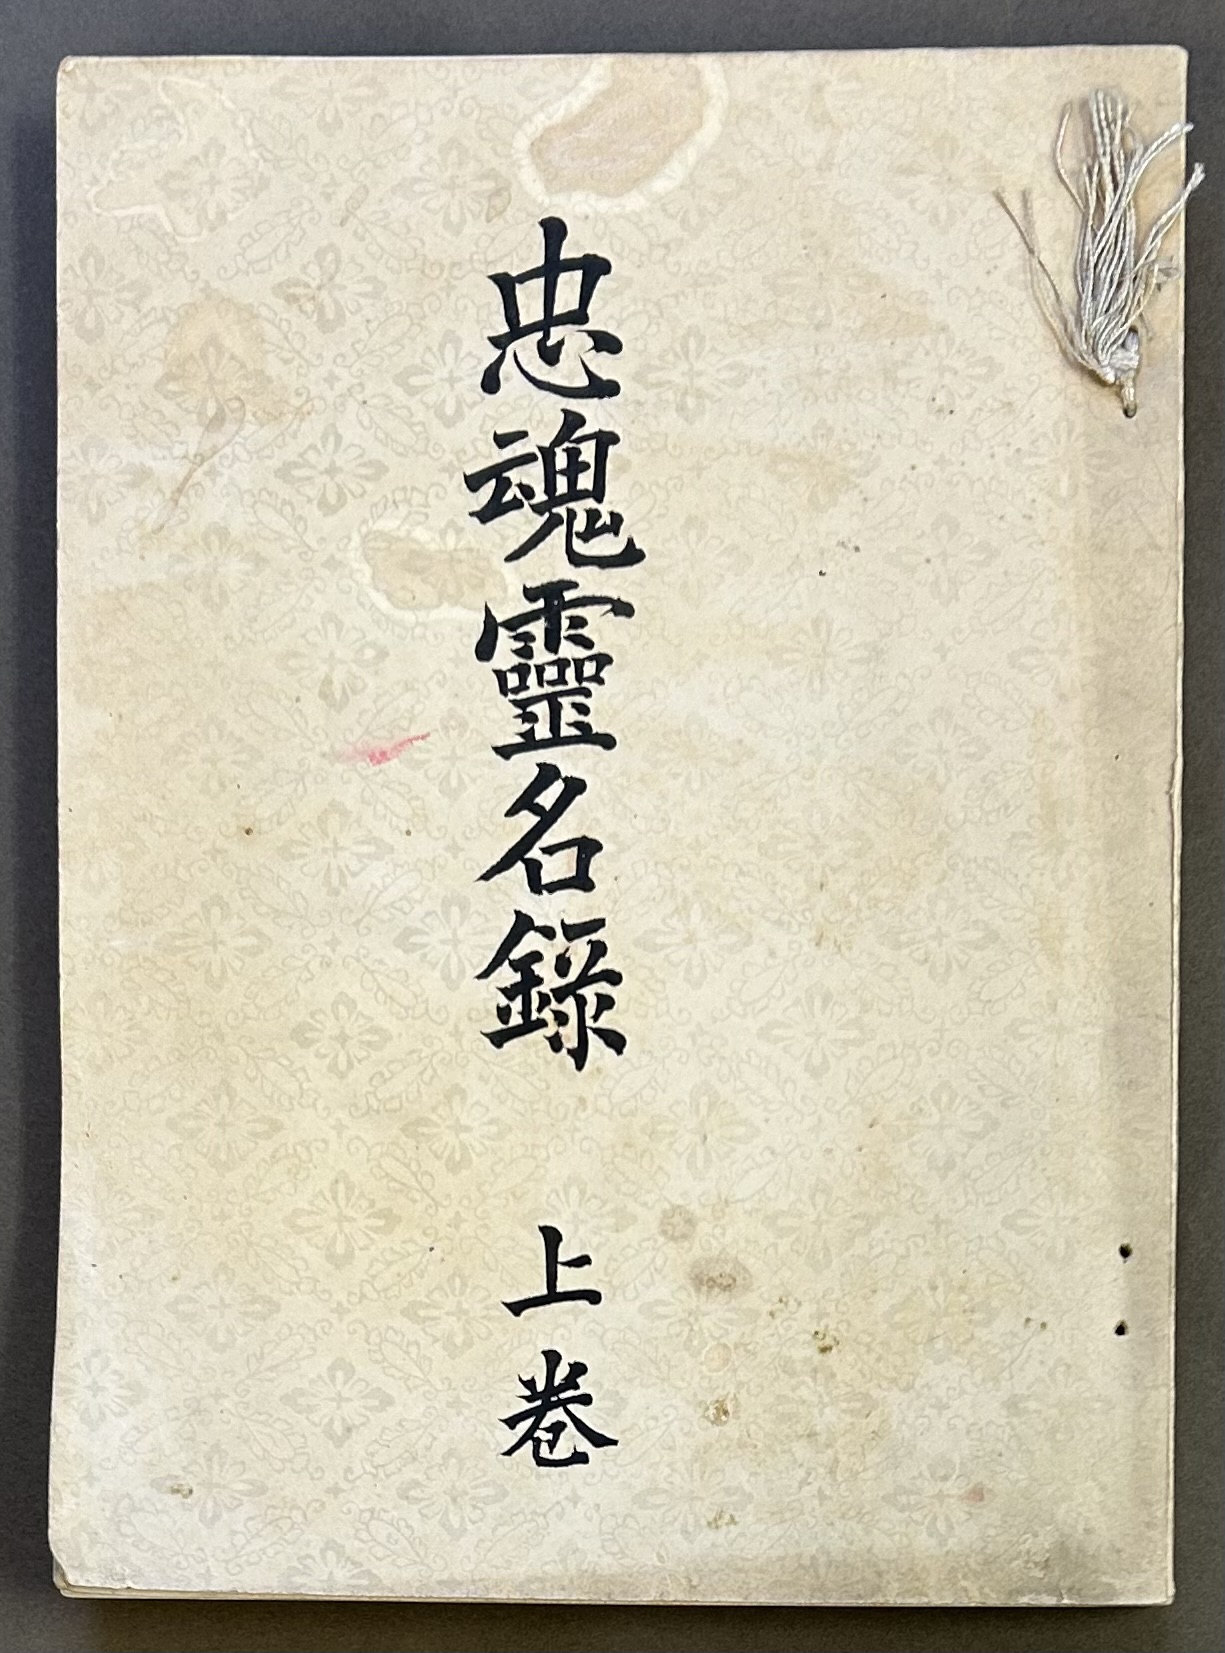 忠魂靈名錄　上巻